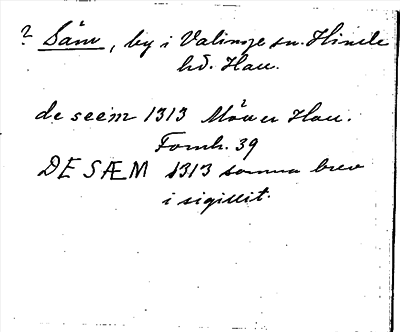 ? Säm, by i Valinge sn. Himle
hd. Hall.
de seem 1313 Möller Hall.
Fornh. 39
DE SÆM 1313 samma brev
i sigillet.